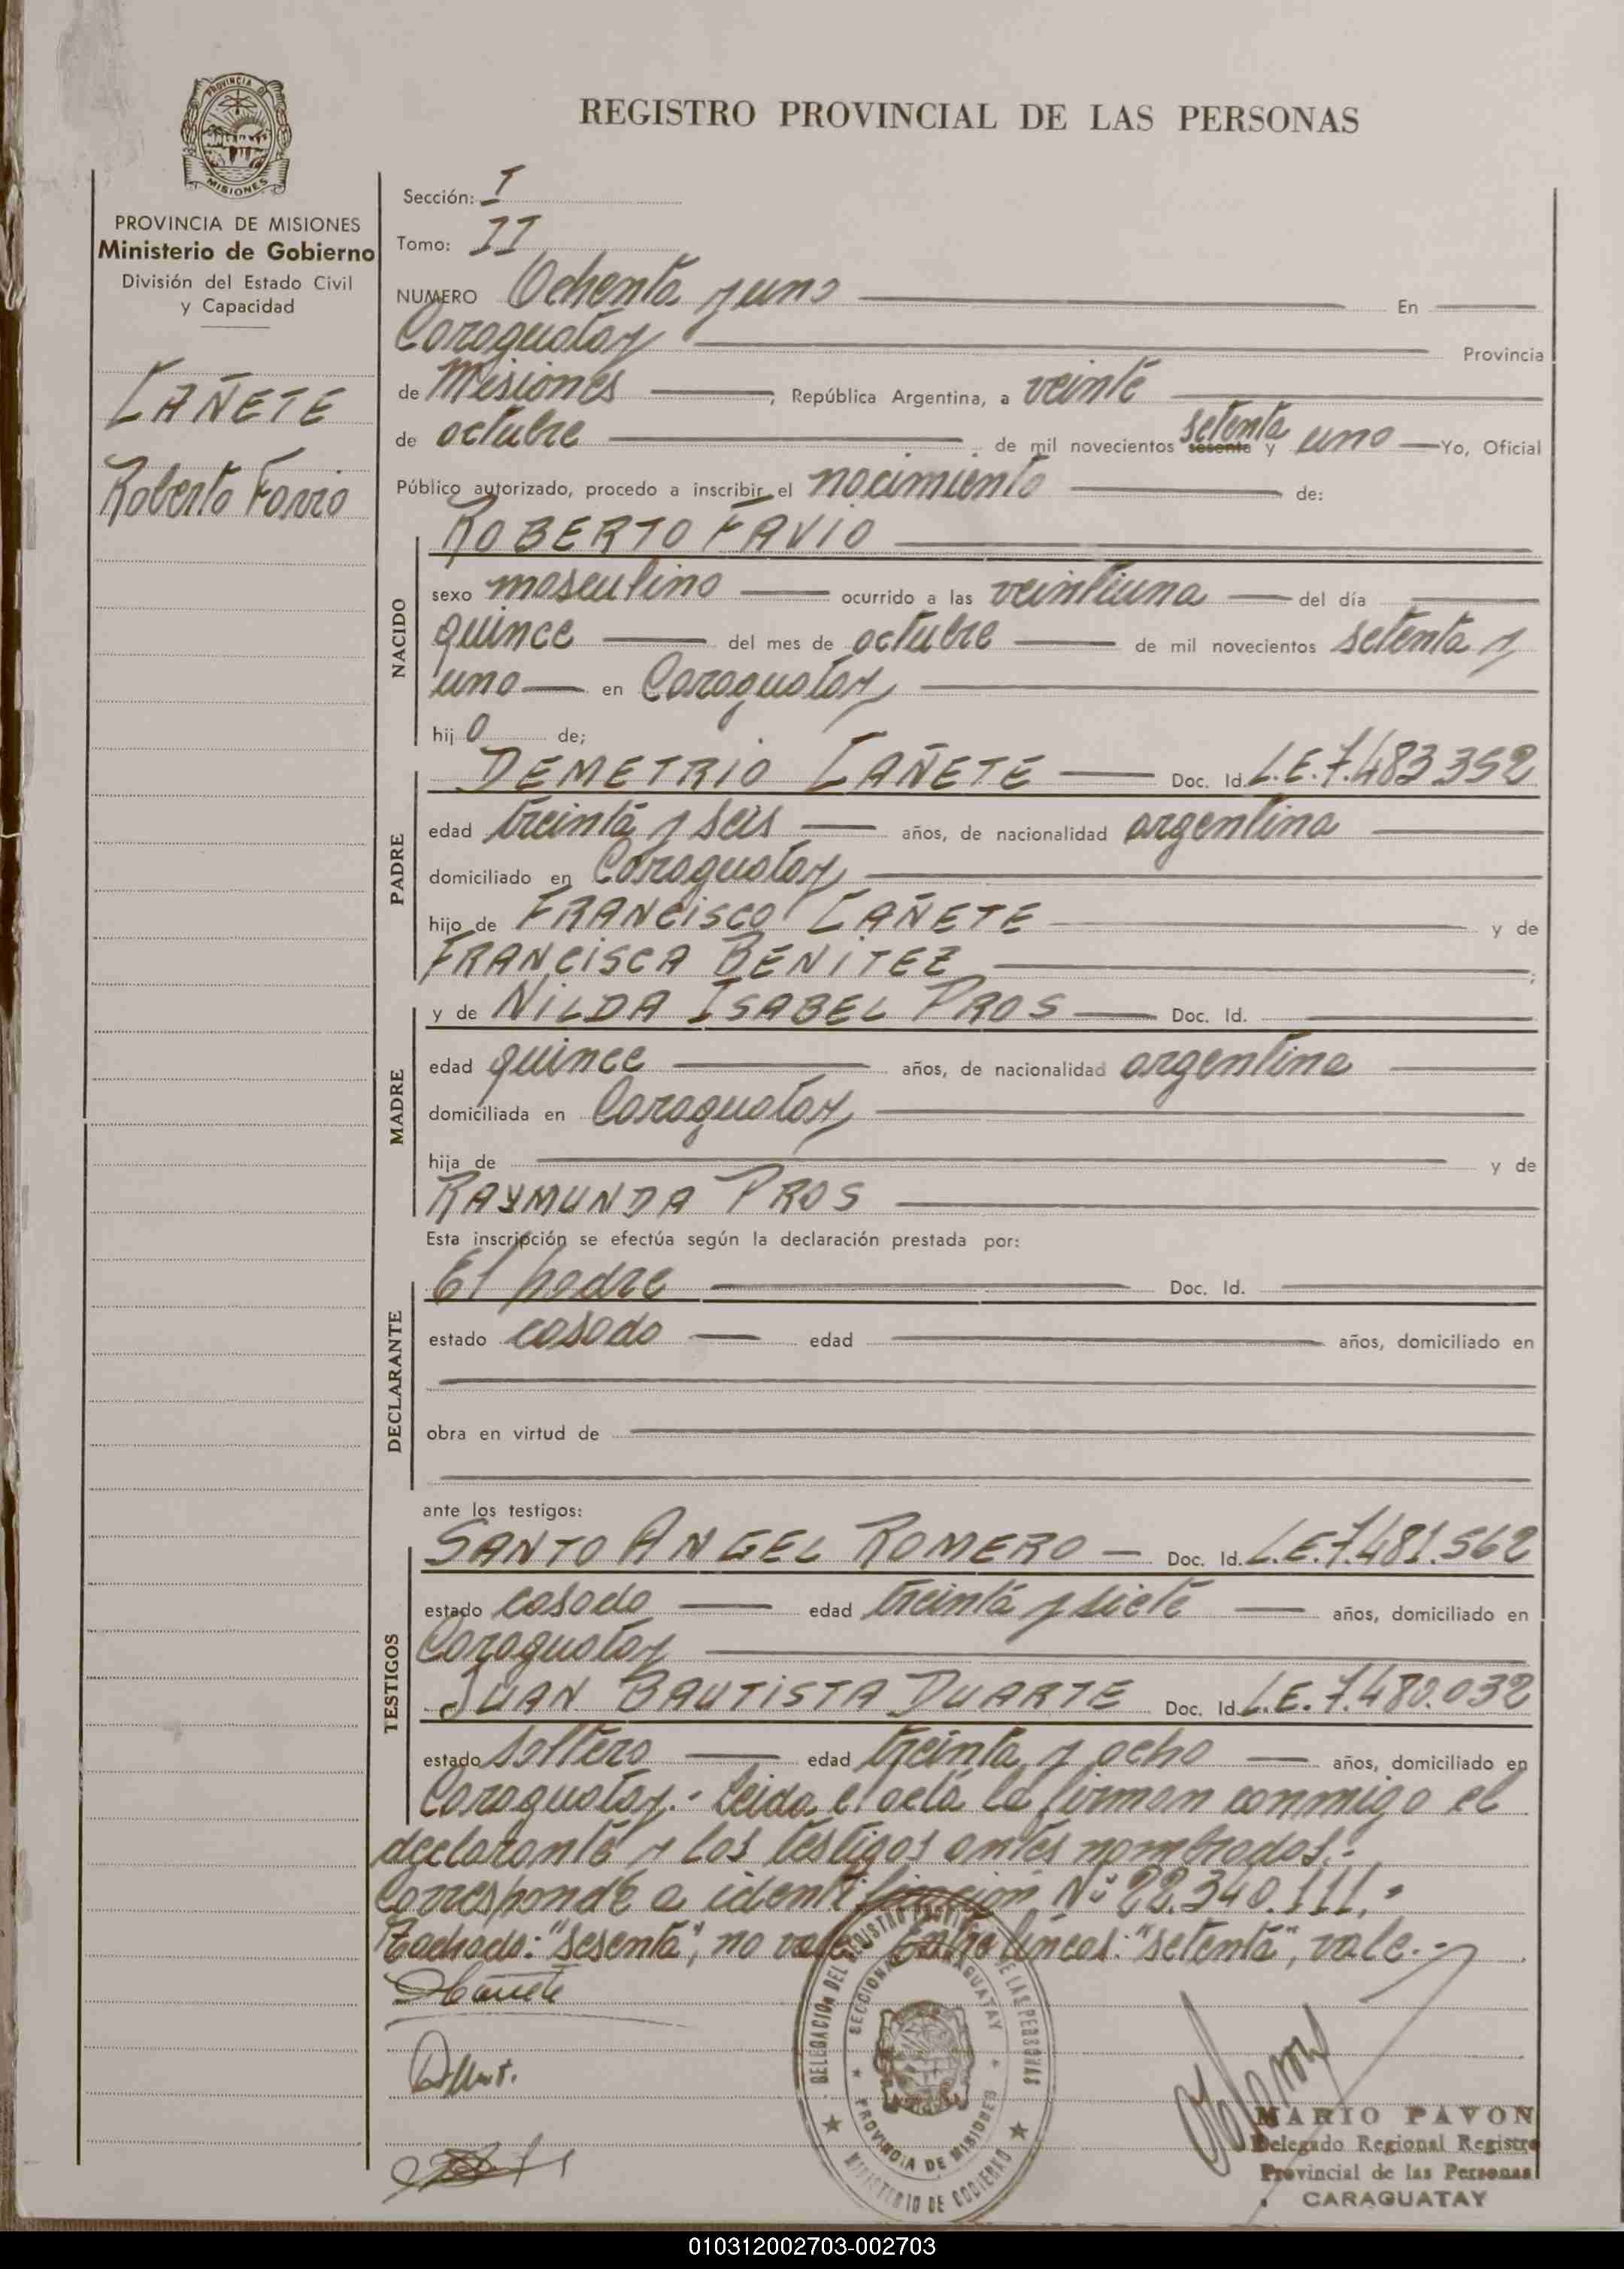 REGISTRO PROVINCIAL DE LAS PERSONAS
PROVINCIA DE MISIONES
PROVINCIA DE MISIONES
Ministerio de Gobierno
División del Estado Civil
y Capacidad
CAÑETE
Roberto Favio
Sección: I
Tomo: II
NUMERO Ochenta y uno En
Caraguatay Provincia
de Misiones, República Argentina, a veinte
de octubre de mil novecientos setenta sesenta y uno Yo, Oficial
Público autorizado, procedo a inscribir el nacimiento de:
NACIDO
ROBERTO FAVIO
sexo masculino ocurrido a las veintiuna del día
quince del mes de octubre de mil novecientos setenta y
uno en Caraguatay
hijo de;
PADRE
DEMETRIO CAÑETE Doc. Id. L.E. 7.483.352
edad treinta y seis años, de nacionalidad argentina
domiciliado en Caraguatay
hijo de FRANCISCO CAÑETE y de
FRANCISCA BENITEZ ;
MADRE
y de NILDA ISABEL PROS Doc. Id.
edad quince años, de nacionalidad argentina
domiciliada en Caraguatay
hija de y de
RAYMUNDA PROS
Esta inscripción se efectúa según la declaración prestada por:
DECLARANTE
El padre Doc. Id.
estado casado edad años, domiciliado en
obra en virtud de
ante los testigos:
TESTIGOS
SANTO ANGEL ROMERO Doc. Id. L.E. 7.481.562
estado casado edad treinta y siete años, domiciliado en
Caraguatay
JUAN BAUTISTA DUARTE Doc. Id. L.E. 7.480.032
estado soltero edad treinta y ocho años, domiciliado en
Caraguatay.- Leida el acta la firman conmigo el
declarante y los testigos antes nombrados.-
Corresponde a identificación Nº 22.340.111.-
Tachado: "sesenta", no vale. Entre líneas: "setenta", vale.-
DELEGACION DEL REGISTRO PROVINCIAL DE LAS PERSONAS
SECCIONAL CARAGUATAY
PROVINCIA DE MISIONES
MINISTERIO DE GOBIERNO
MARIO PAVON
Delegado Regional Registro
Provincial de las Personas
CARAGUATAY
010312002703-002703